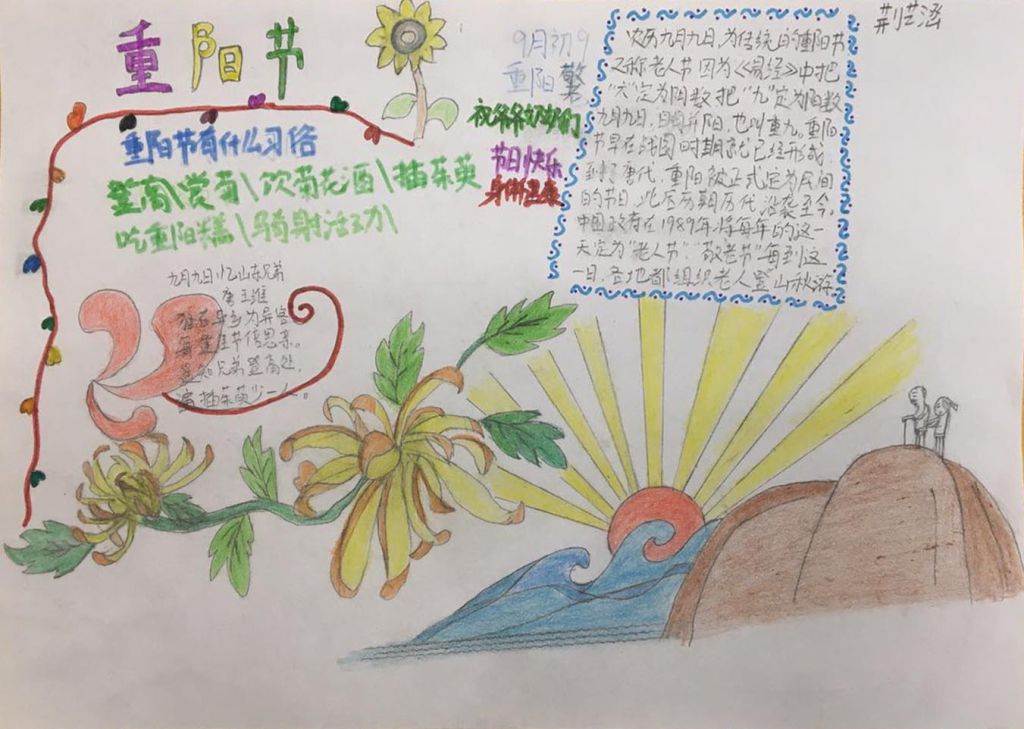 重阳节
重阳节有什么习俗
登高\赏菊\饮菊花酒\插茱萸
吃重阳糕\骑射活动\
九月九日忆山东兄弟
唐王维
独在异乡为异客
每逢佳节倍思亲。
遥知兄弟登高处,
遍插茱萸少一人。
9月初9
重阳
祝爷爷奶奶们
节日快乐
身体健康
农历九月九日,为传统的重阳节
又称老人节因为《易经》中把
"六"定为阴数把"九"定为阳数
九月九日,日月并阳,也叫重九。重阳
节早在战国时期就已经形成
到了唐代,重阳被正式定为民间
的节日,此后历朝历代沿袭至今。
中国政府在1989年将每年的这一
天定为"老人节""敬老节"每到这
一日,各地都组织老人登山秋游
荆艺涵